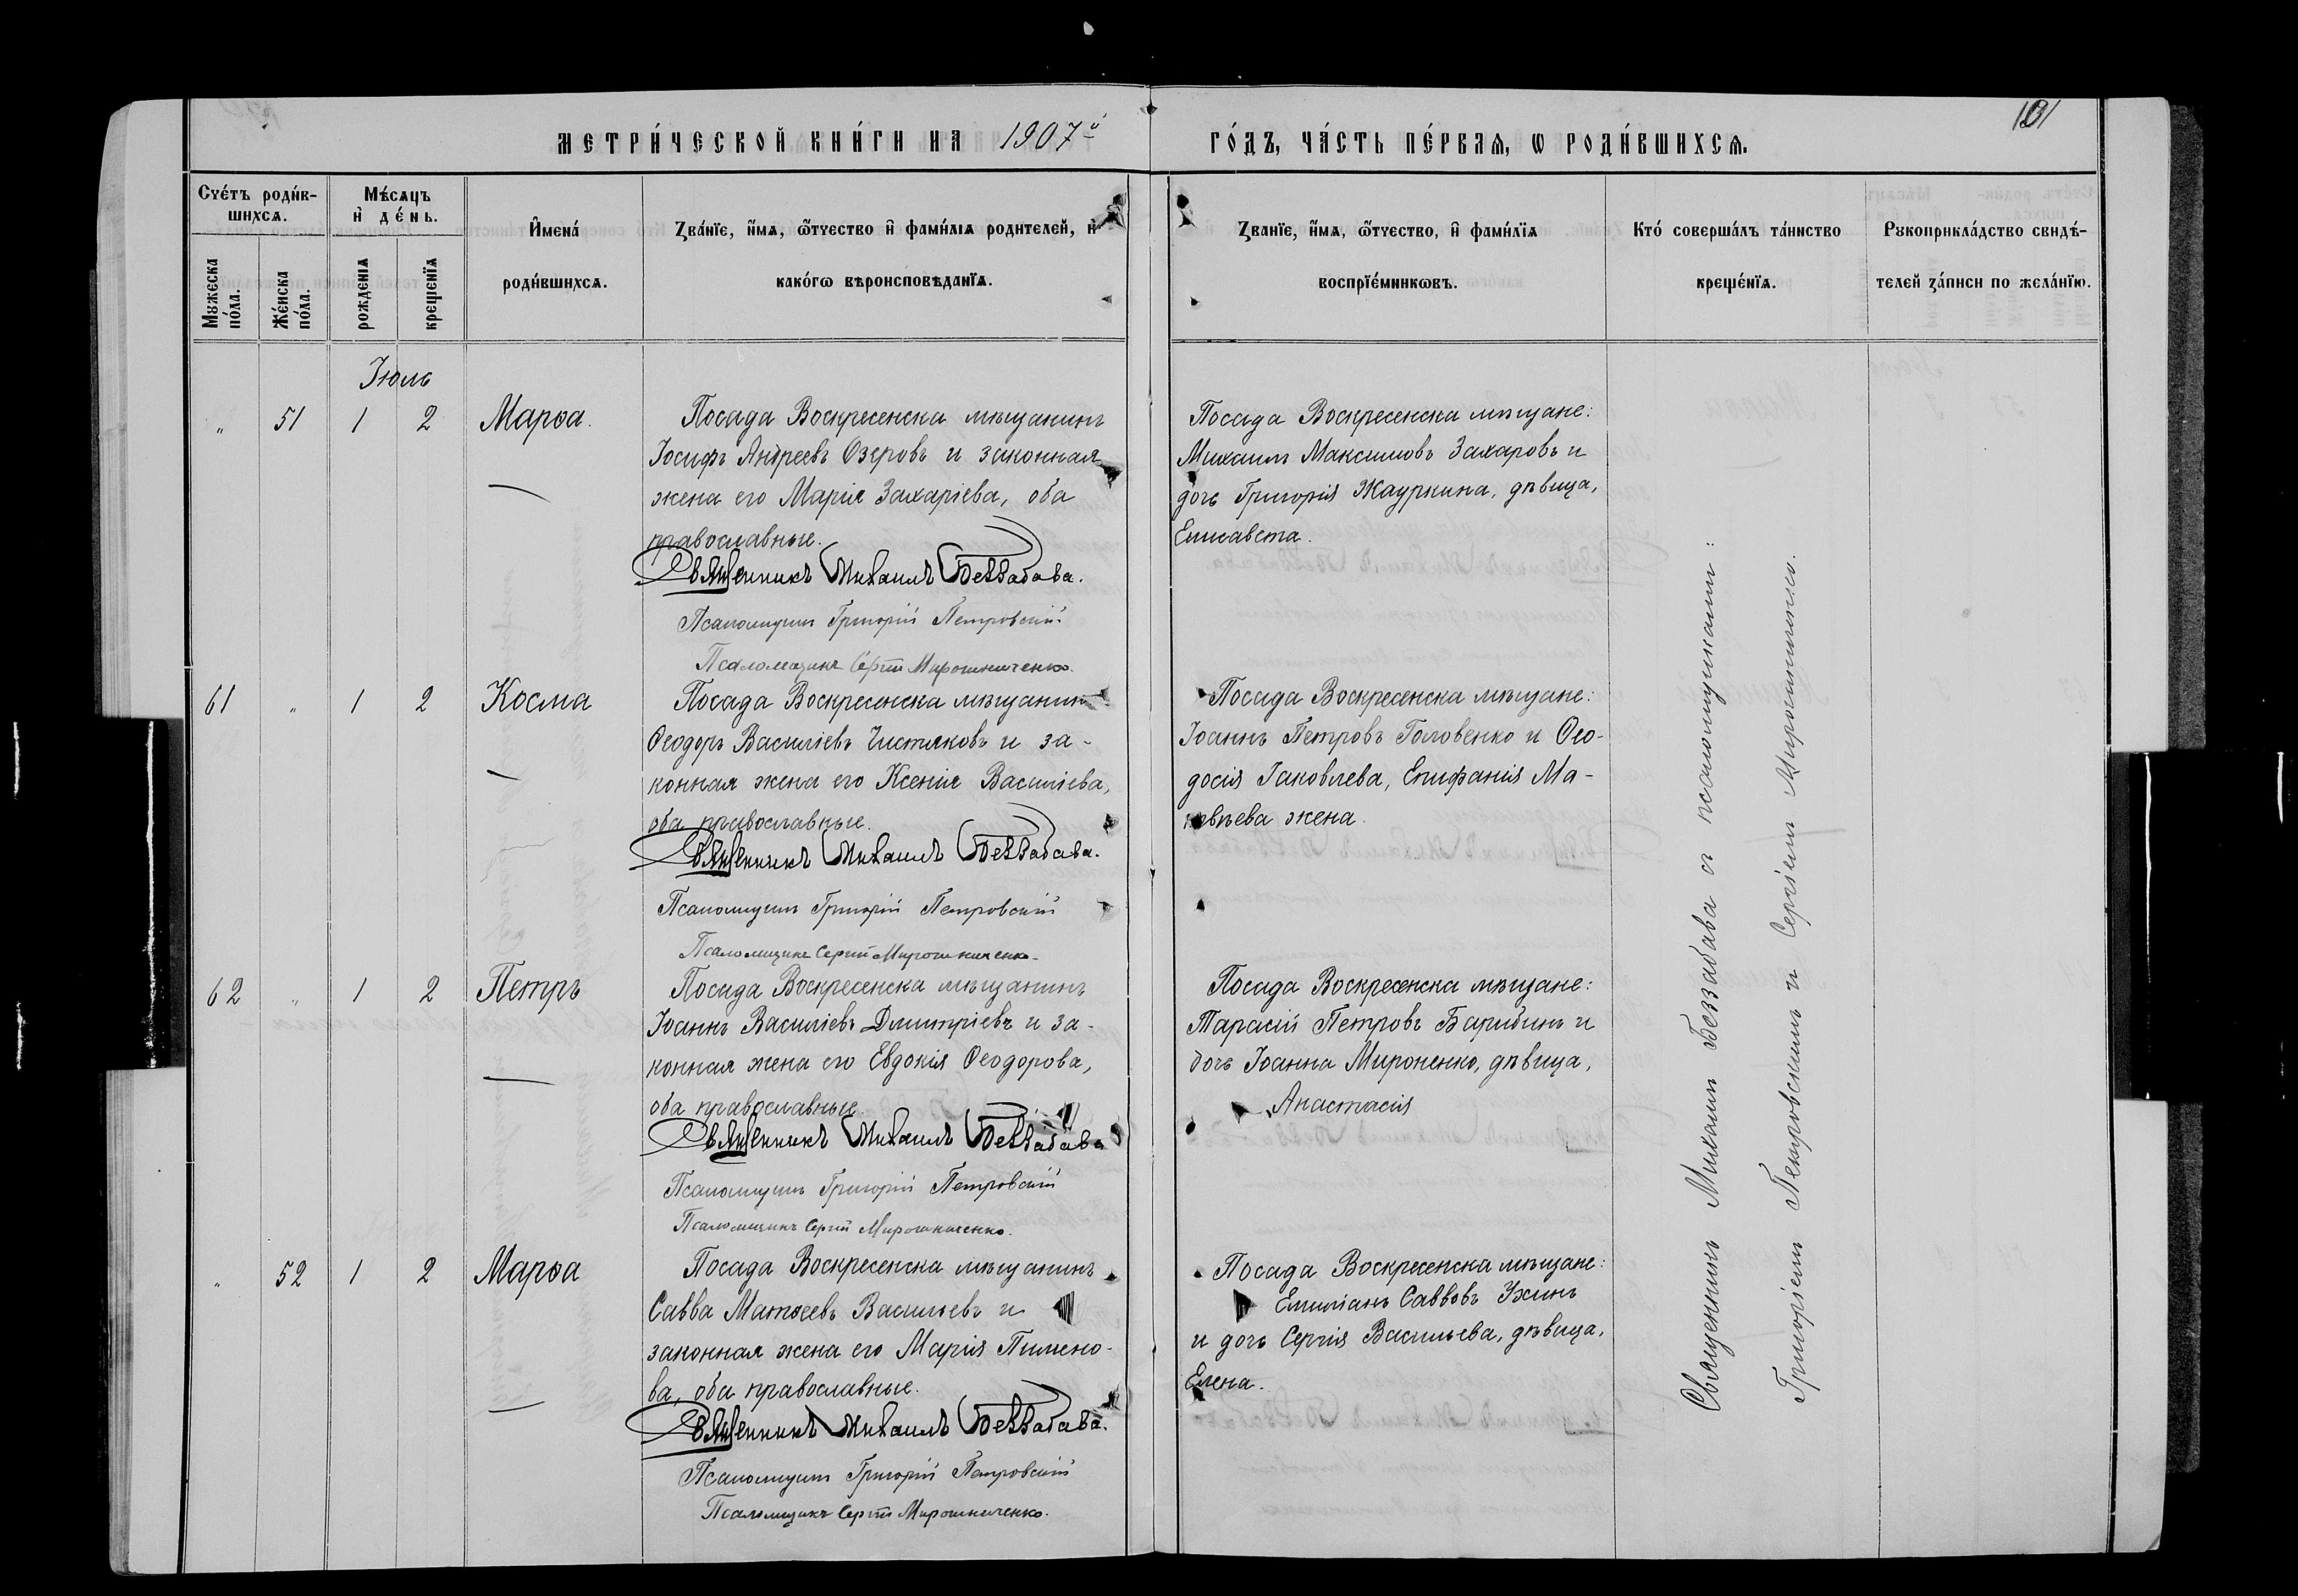 МЕТРИ́ЧЕСКОЙ КНИ́ГИ НА 1907й ГО́ДЪ, ЧА́СТЬ ПЕ́РВАѦ, Ѡ РОДИ́ВШИХСѦ.
Счéтъ родѝв-
шихсѧ.
Мужеска
по́ла.
Же́нска
по́ла.
Мѣ́сѧцъ
и҆ де́нь.
рожденїѧ
крещенїѧ
И҆мена̀
роди́вшихсѧ.
Зва́нїе, и҆́мѧ, ѻ҆́тчество и҆ фами́лїѧ родителей, и҆
како́гѡ вѣроисповѣданїѧ.
Зва́нїе, и҆́мѧ, ѻ҆́тчество, и҆ фами́лїѧ
воспрїе́мникѡвъ.
Кто́ соверша́лъ та́инство
креще́нїѧ.
Рукоприкла́дство свидѣ́-
телей за́писи по жела́нїю.
Іюль
„ 51 1 2 Марѳа.
Посада Воскресенска мѣщанинъ
Іосифъ Андреевъ Озеровъ и законная
жена его Марія Захаріева, оба
православные.
Священникъ Михаилъ Беззабава.
Псаломщикъ Григорій Петровскій.
Псаломщикъ Сергій Мирошниченко.
Посада Воскресенска мѣщане:
Михаилъ Максимовъ Захаровъ и
дочь Григорія Жауркина, дѣвица,
Елисавета.
61 „ 1 2 Косма
Посада Воскресенска мѣщанинъ
Ѳеодоръ Василіевъ Чистяковъ и за-
конная жена его Ксенія Василіева,
оба православные.
Священникъ Михаилъ Беззабава.
Псаломщикъ Григорій Петровскій
Псаломщикъ Сергій Мирошниченко.
Посада Воскресенска мѣщане:
Іоаннъ Петровъ Головенко и Ѳео-
досія Іаковлева, Епифанія Ма-
жена.
62 „ 1 2 Петръ
Посада Воскресенска мѣщанинъ
Іоаннъ Василіевъ Димитріевъ и за-
конная жена его Евдокія Ѳеодорова,
оба православные.
Священникъ Михаилъ Беззабава
Псаломщикъ Григорій Петровскій
Псаломщикъ Сергій Мирошниченко.
Посада Воскресенска мѣщане:
Тарасій Петровъ Барибинъ и
дочь Іоанна Мироненко, дѣвица,
Анастасія
„ 52 1 2 Марѳа
Посада Воскресенска мѣщанинъ
Савва Матѳеевъ Васильевъ и
законная жена его Марія Пимено-
ва, оба православные.
Священникъ Михаилъ Беззабава.
Псаломщикъ Григорій Петровскій
Псаломщикъ Сергій Мирошниченко.
Посада Воскресенска мѣщане:
Емиліанъ Саввовъ Ухинъ
и дочь Сергія Васильева, дѣвица,
Елена.
Священникъ Михаилъ Беззабава съ псаломщиками:
Григоріемъ Петровскимъ и Сергіемъ Мирошниченко.